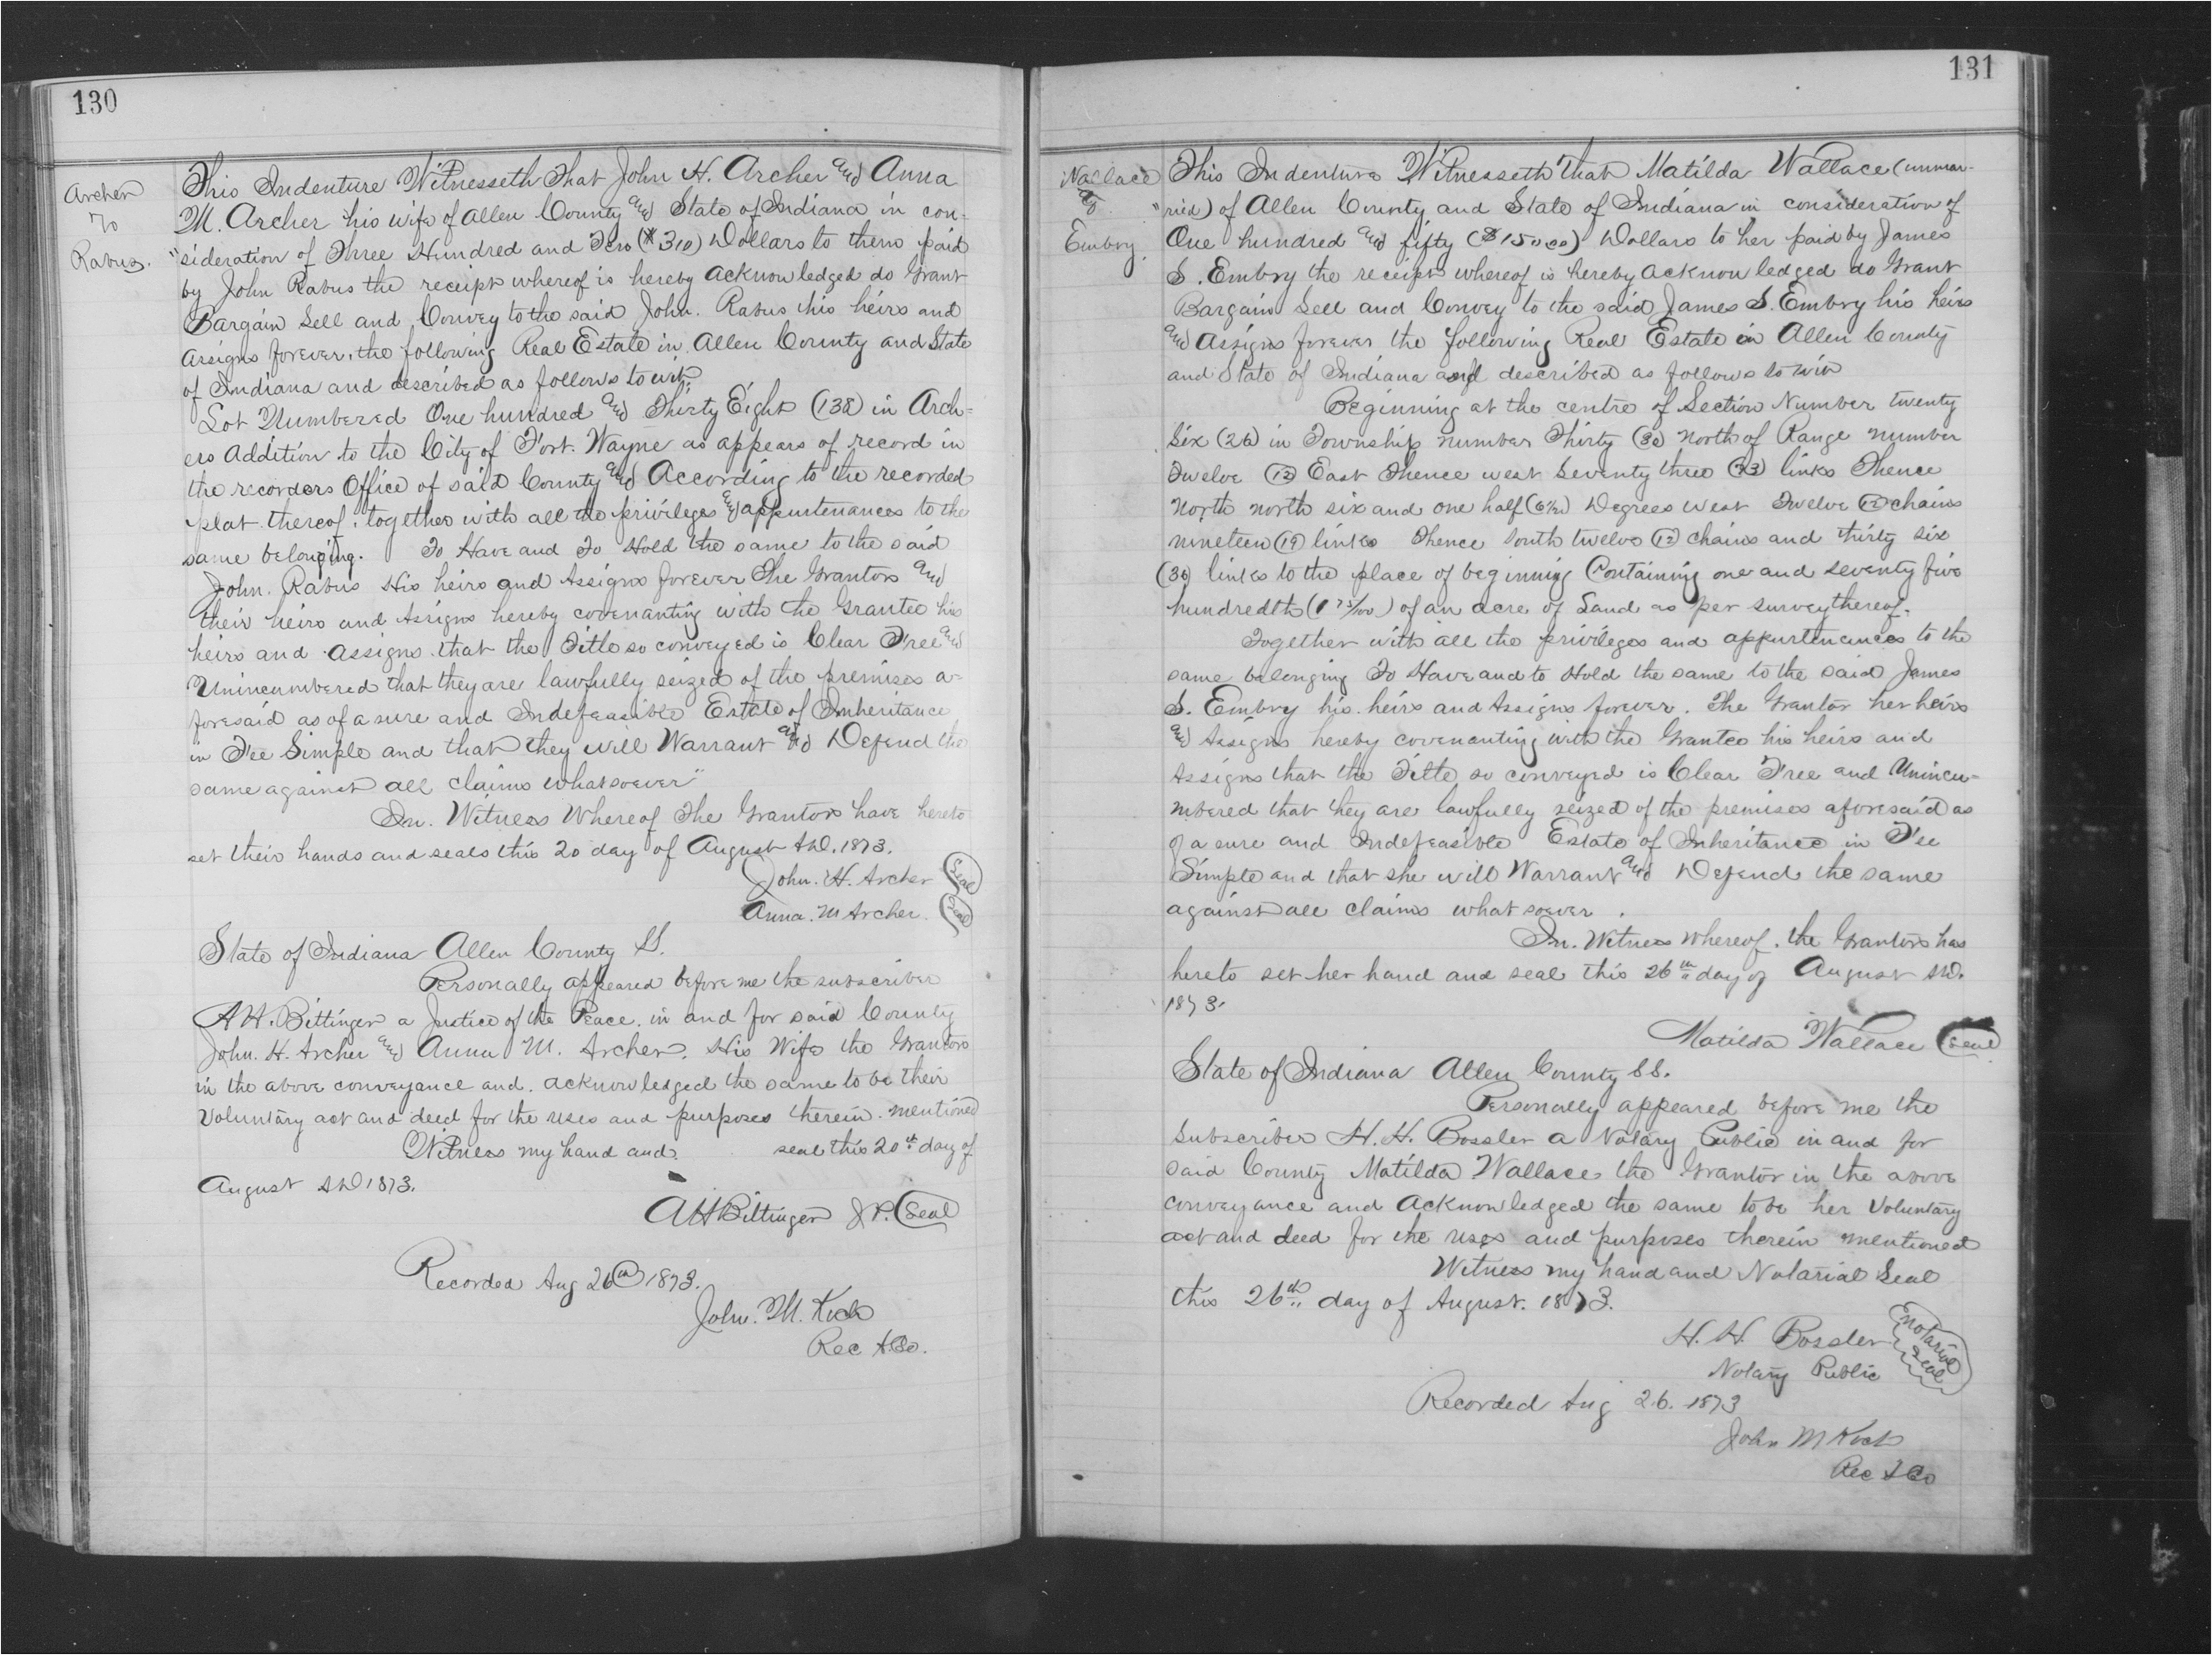 130
Archer
To
Rabus.
This Indenture Witnesseth That John H. Archer and Anna
M. Archer his wife of Allen County and State of Indiana in con-
"sideration of Three Hundred and Ten ($310) Dollars to them paid
by John Rabus the receipt whereof is hereby acknowledged do Grant
Bargain Sell and Convey to the said John. Rabus his heirs and
assigns forever, the following Real Estate in Allen County and State
of Indiana and described as follows to wit:
Lot Numbered One hundred and Thirty Eight (138) in Arch-
ers Addition to the City of Fort. Wayne as appears of record in
the recorders Office of said County and According to the recorded
plat thereof. together with all the privileges and appurtenances to the
same belonging. To Have and To Hold the same to the said
John. Rabus His heirs and Assigns forever The Grantors and
their heirs and Assigns hereby covenanting with the Grantee his
heirs and Assigns that the Title so conveyed is Clear Free and
Unincumbered that they are lawfully seized of the premises a-
foresaid as of a sure and Indefeasible Estate of Inheritance
in Fee Simple and that they will Warrant and Defend the
same against all claims whatsoever"
In. Witness Whereof The Grantors have hereto
set their hands and seals this 20 day of August A.D. 1873.
John. H. Archer (Seal)
Anna. M Archer. (Seal)
State of Indiana Allen County SS.
Personally appeared before me the subscriber
A H. Bittinger a Justice of the Peace. in and for said County
John. H. Archer and Anna M. Archer. His Wife the Grantors
in the above conveyance and. acknowledged the same to be their
Voluntary act and deed for the uses and purposes therein. mentioned
Witness my hand and seal this 20th day of
August AD 1873.
A H Bittinger J P. (Seal)
Recorded Aug 26th 1873.
John. M. Koch
Rec A.Co.
131
Wallace
to
Embry.
This Indenture Witnesseth That Matilda Wallace (unmar-
"ried) of Allen County and State of Indiana in consideration of
One hundred and fifty ($150.00) Dollars to her paid by James
S. Embry the receipt whereof is hereby acknowledged do Grant
Bargain Sell and Convey to the said James S. Embry his heirs
and Assigns forever the following Real Estate in Allen County
and State of Indiana and described as follows to wit
Beginning at the centre of Section Number twenty
Six (26) in Township number Thirty (30) North of Range number
Twelve (12) East Thence west Seventy three (73) links Thence
North north six and one half (6½) Degrees west Twelve (12) chains
nineteen (19) links Thence South twelve (12) chains and thirty six
(36) links to the place of beginning Containing one and seventy five
hundredth (1 75/100) of an acre of Land as per survey thereof.
Together with all the privileges and appurtenances to the
same belonging To Have and to Hold the same to the said James
S. Embry his heirs and Assigns forever. The Grantor her heirs
and Assigns hereby covenanting with the Grantee his heirs and
Assigns that the Title so conveyed is Clear Free and Unincu-
mbered that they are lawfully seized of the premises aforesaid as
of a sure and Indefeasible Estate of Inheritance in Fee
Simple and that she will Warrant and Defend the same
against all claims whatsoever.
In. Witness Whereof. the Grantors has
hereto set her hand and seal this 26th day of August A.D.
1873.
Matilda Wallace (Seal)
State of Indiana Allen County SS.
Personally appeared before me the
Subscriber H. H. Bossler a Notary Public in and for
said County Matilda Wallace the Grantor in the above
conveyance and acknowledged the same to be her Voluntary
act and deed for the uses and purposes therein mentioned
Witness my hand and Notarial Seal
this 26th day of August. 1873.
H. H. Bossler
Notary Public
Notarial Seal
Recorded Aug 26. 1873
John M Koch
Rec A Co